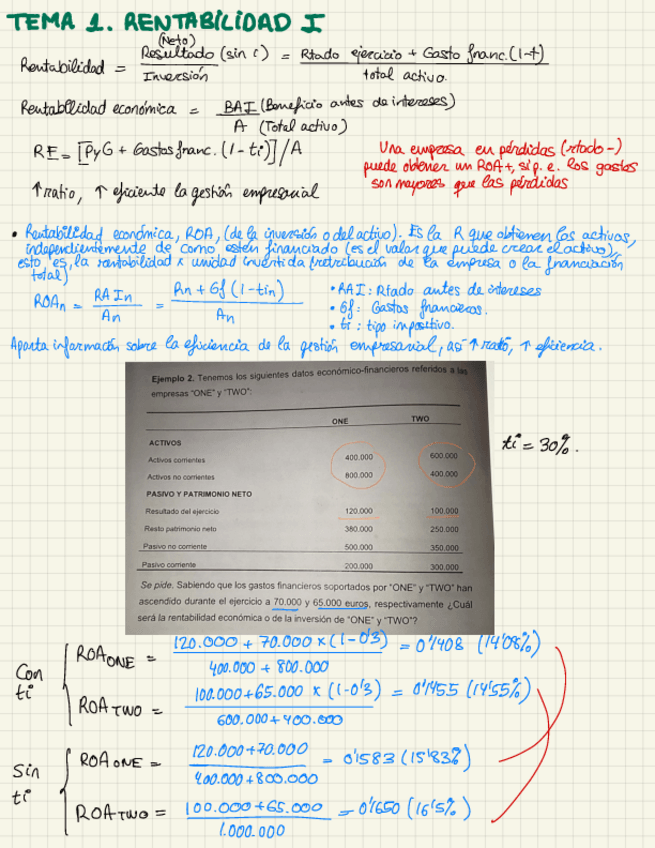 TEMA 1. RENTABILIDAD I
(Neto)
Rentabilidad = Resultado (sin i) / Inversión = Rtado ejercicio + Gasto financ. (1-t) / total activo.
Rentabilidad económica = BAI (Beneficio antes de intereses) / A (Total activo)
RE = [PyG + Gastos financ. (1 - ti)] / A
Una empresa en pérdidas (rtado -)
puede obtener un ROA+, si p. e. los gastos
son mayores que las pérdidas
↑ ratio, ↑ eficiente la gestión empresarial
• Rentabilidad económica, ROA, (de la inversión o del activo). Es la R que obtienen los activos,
independientemente de como estén financiado (es el valor que puede crear el activo),
esto es, la rentabilidad x unidad invertida (retribución de la empresa o la financiación
total)
ROAn = RAIn / An = Rn + Gf (1 - tin) / An
• RAI: Rtado antes de intereses
• Gf: Gastos financieros.
• ti: tipo impositivo.
Aporta información sobre la eficiencia de la gestión empresarial, así ↑ ratio, ↑ eficiencia.
Ejemplo 2. Tenemos los siguientes datos económico-financieros referidos a las
empresas "ONE" y "TWO":
ONE TWO
ACTIVOS
Activos corrientes 400.000 600.000
Activos no corrientes 800.000 400.000
PASIVO Y PATRIMONIO NETO
Resultado del ejercicio 120.000 100.000
Resto patrimonio neto 380.000 250.000
Pasivo no corriente 500.000 350.000
Pasivo corriente 200.000 300.000
ti = 30%.
Se pide. Sabiendo que los gastos financieros soportados por "ONE" y "TWO" han
ascendido durante el ejercicio a 70.000 y 65.000 euros, respectivamente ¿Cuál
será la rentabilidad económica o de la inversión de "ONE" y "TWO"?
Con ti
ROA ONE = 120.000 + 70.000 x (1-0'3) / 400.000 + 800.000 = 0'1408 (14'08%)
ROA TWO = 100.000 + 65.000 x (1-0'3) / 600.000 + 400.000 = 0'1455 (14'55%)
Sin ti
ROA ONE = 120.000 + 70.000 / 400.000 + 800.000 = 0'1583 (15'83%)
ROA TWO = 100.000 + 65.000 / 1.000.000 = 0'1650 (16'5%)